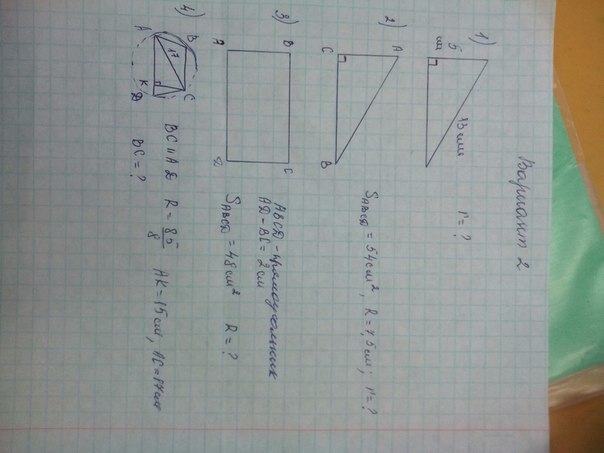 Вариант 2
1)
5
см
13 см
r = ?
2)
A
C
B
S ABCD = 54 см², R = 7,5 см; r = ?
3)
B
C
A
D
ABCD - прямоугольник
AD - BC = 2 см
S ABCD = 48 см² R = ?
4)
B
C
A
17
K
D
BC || AD R = 85/8 AK = 15 см, AC = 17 см
BC = ?